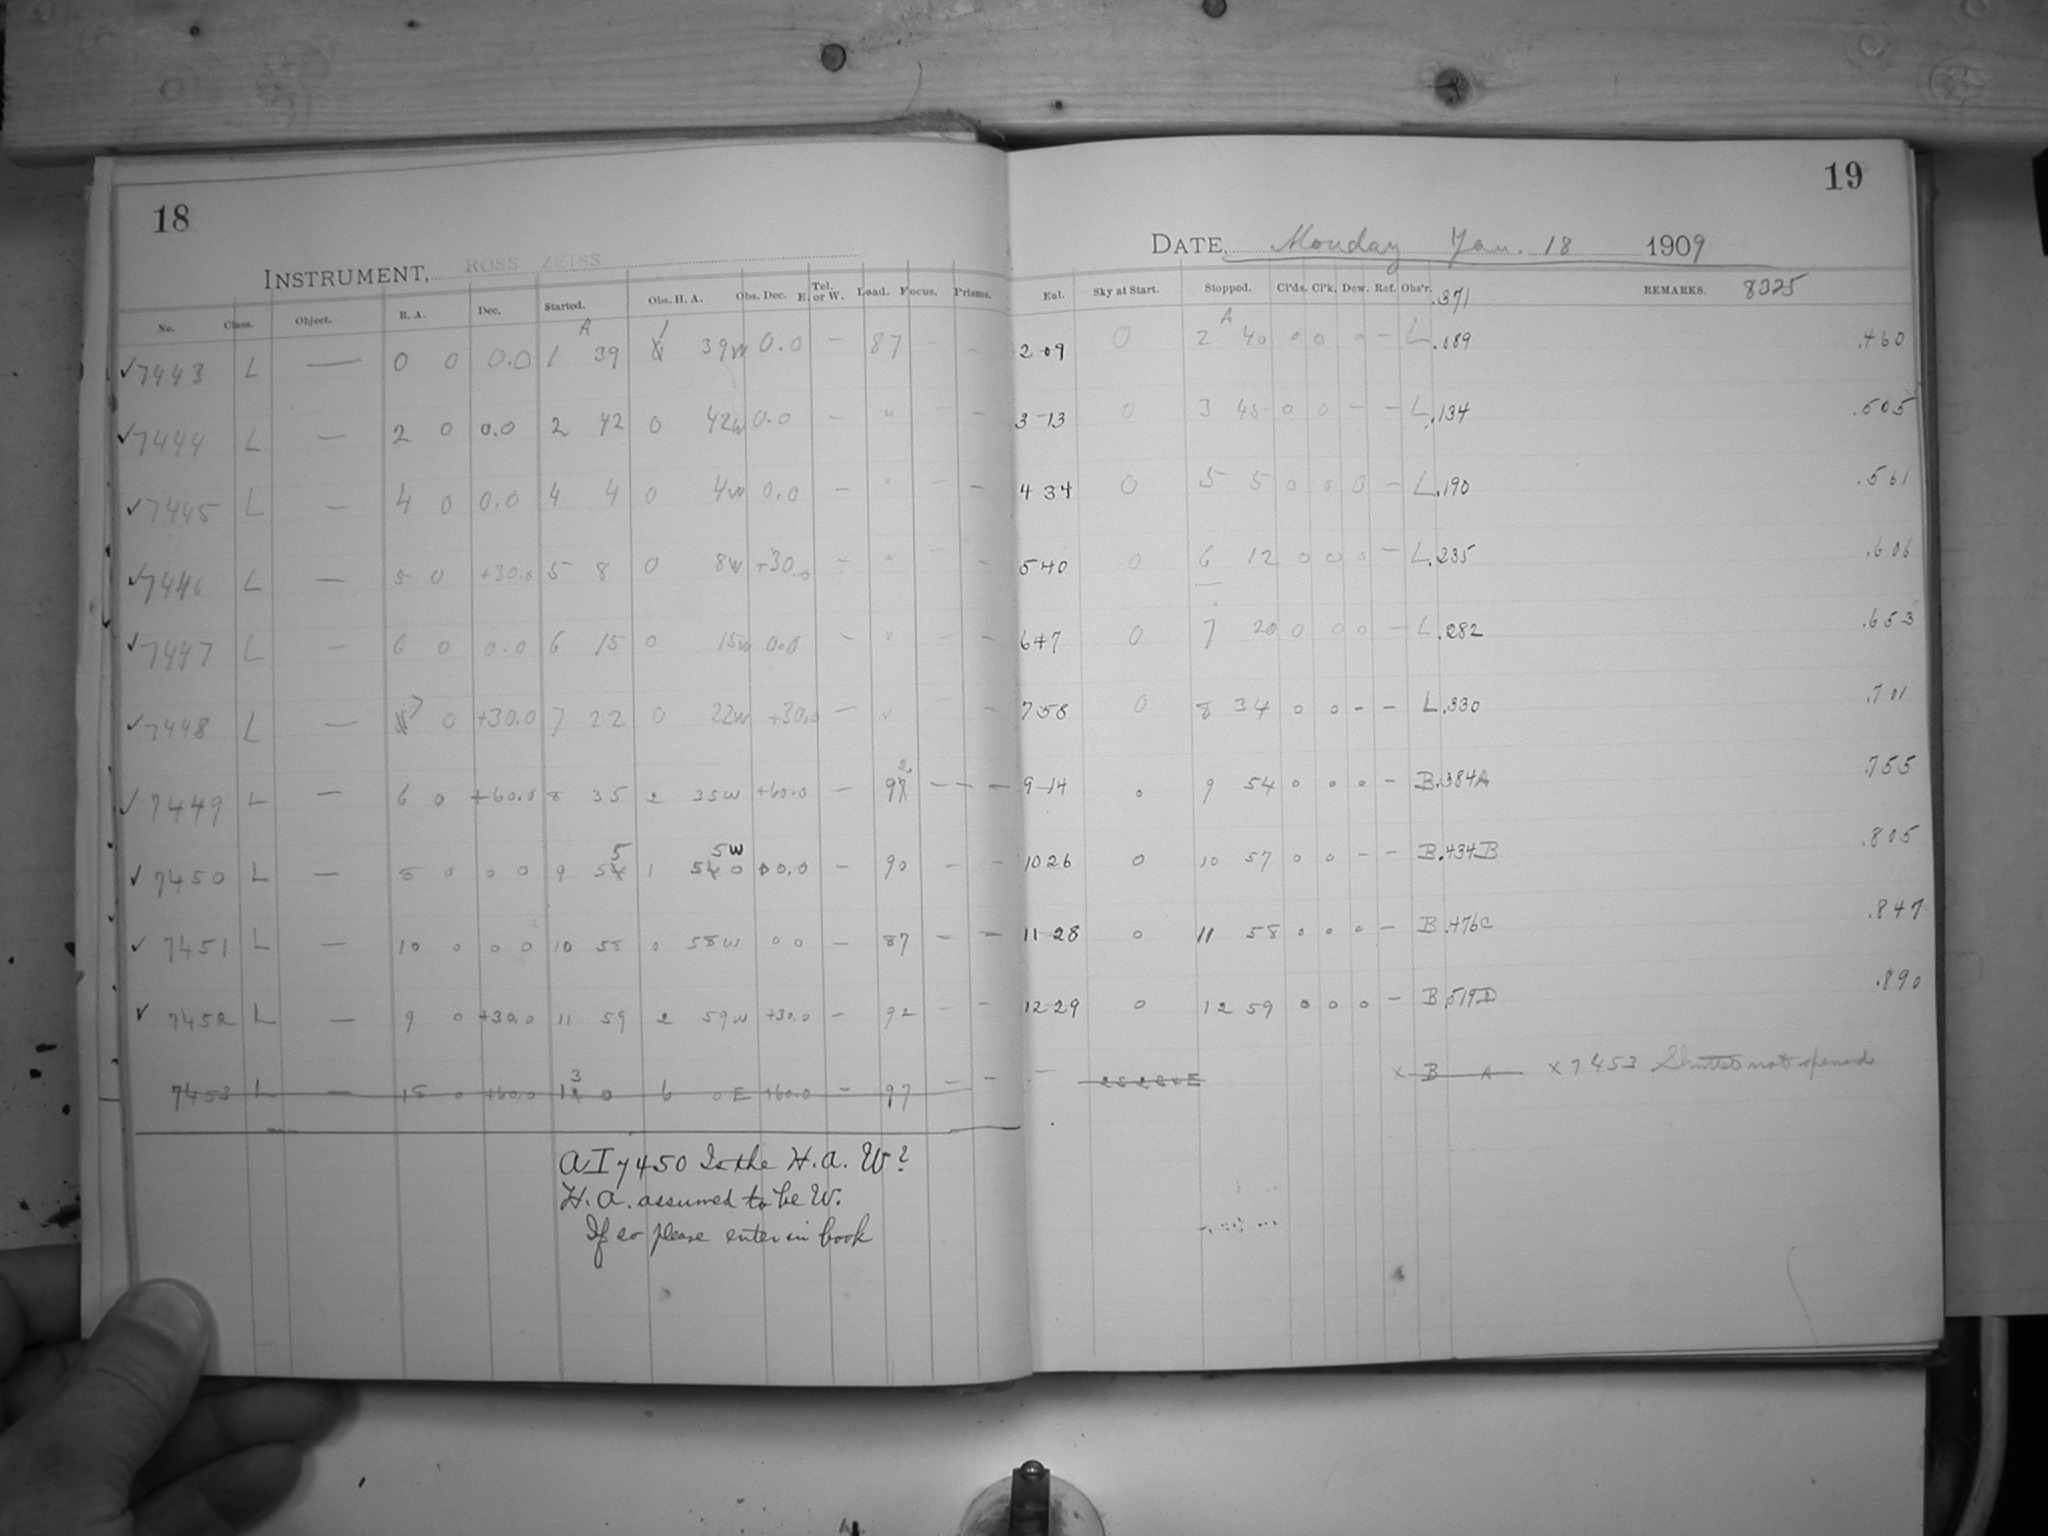 18
INSTRUMENT, ROSS ZEISS
No. Class. Object. R. A. Dec. Started. Obs. H. A. Obs. Dec. Tel. E. or W. Load. Focus. Prisms.
A
✓7443 L — 0 0 0.0 1 39 1 39w 0.0 — 87 - -
✓7444 L — 2 0 0.0 2 42 0 42w 0.0 — " - -
✓7445 L — 4 0 0.0 4 4 0 4w 0.0 — " - -
✓7446 L — 5 0 +30.0 5 8 0 8w +30.0 — " - -
✓7447 L — 6 0 0.0 6 15 0 15w 0.0 — " - -
✓7448 L — 7 0 +30.0 7 22 0 22w +30.0 — " - -
✓7449 L — 6 0 +60.0 8 35 2 35w +60.0 — 92 - - -
✓7450 L — 8 0 0 0 9 55 1 55w 00.0 — 90 - -
✓7451 L — 10 0 0 0 10 58 0 58w 0 0 — 87 - -
✓7452 L — 9 0 +30.0 11 59 2 59w +30.0 — 92 - -
7453 L — 15 0 +60.0 13 0 6 0 E +60.0 — 97 - -
AI 7450 Is the H.A. W?
H.A. assumed to be W.
If so please enter in book
19
DATE, Monday Jan. 18 1909
Eal. Sky at Start. Stopped. Cl'ds. Cl'k. Dew. Ref. Obs'r. REMARKS. 8325
.371
A
2 09 0 2 40 0 0 0 - L .089 .460
3 13 0 3 45 0 0 - - L .134 .505
4 34 0 5 5 0 0 0 - L .190 .561
5 40 0 6 12 0 0 0 - L .235 .606
6 47 0 7 20 0 0 0 - L .282 .653
7 58 0 8 34 0 0 - - L .330 .701
9 14 0 9 54 0 0 0 - B .384A .755
10 26 0 10 57 0 0 - - B .434B .805
11 28 0 11 58 0 0 0 - B .476C .847
12 29 0 12 59 0 0 0 - B .519D .890
× B A × 7453 Shutter not opened